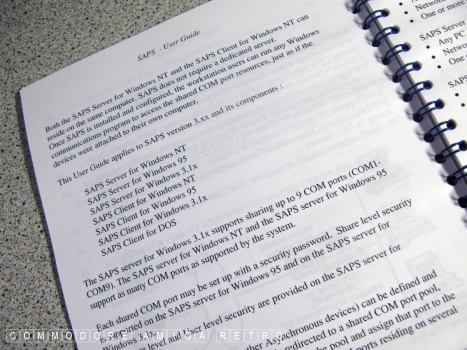 SAPS - User Guide
Both the SAPS Server for Windows NT and the SAPS Client for Windows NT can
reside on the same computer. SAPS does not require a dedicated server.
Once SAPS is installed and configured, the workstation users can run any Windows
communications program to access the shared COM port resources, just as if the
devices were attached to their own computer.
This User Guide applies to SAPS version 3.xx and its components :
SAPS Server for Windows NT
SAPS Server for Windows 95
SAPS Server for Windows 3.1x
SAPS Client for Windows NT
SAPS Client for Windows 95
SAPS Client for Windows 3.1x
SAPS Client for DOS
The SAPS server for Windows 3.1x supports sharing up to 9 COM ports (COM1-
COM9). The SAPS server for Windows NT and the SAPS server for Windows 95
support as many COM ports as supported by the system.
Each shared COM port may be set up with a security password. Share level security
is provided on the SAPS server for Windows 95 and on the SAPS server for
Windows level and User level security are provided on the SAPS server for
Asynchronous devices) can be defined and
redirected to a shared COM port pool,
the pool and assign that port to the
ports residing on several
One or more
SAPS Server
Any PC
Netwo
One o
SAPS
COMMODORE AMIGA RETRO